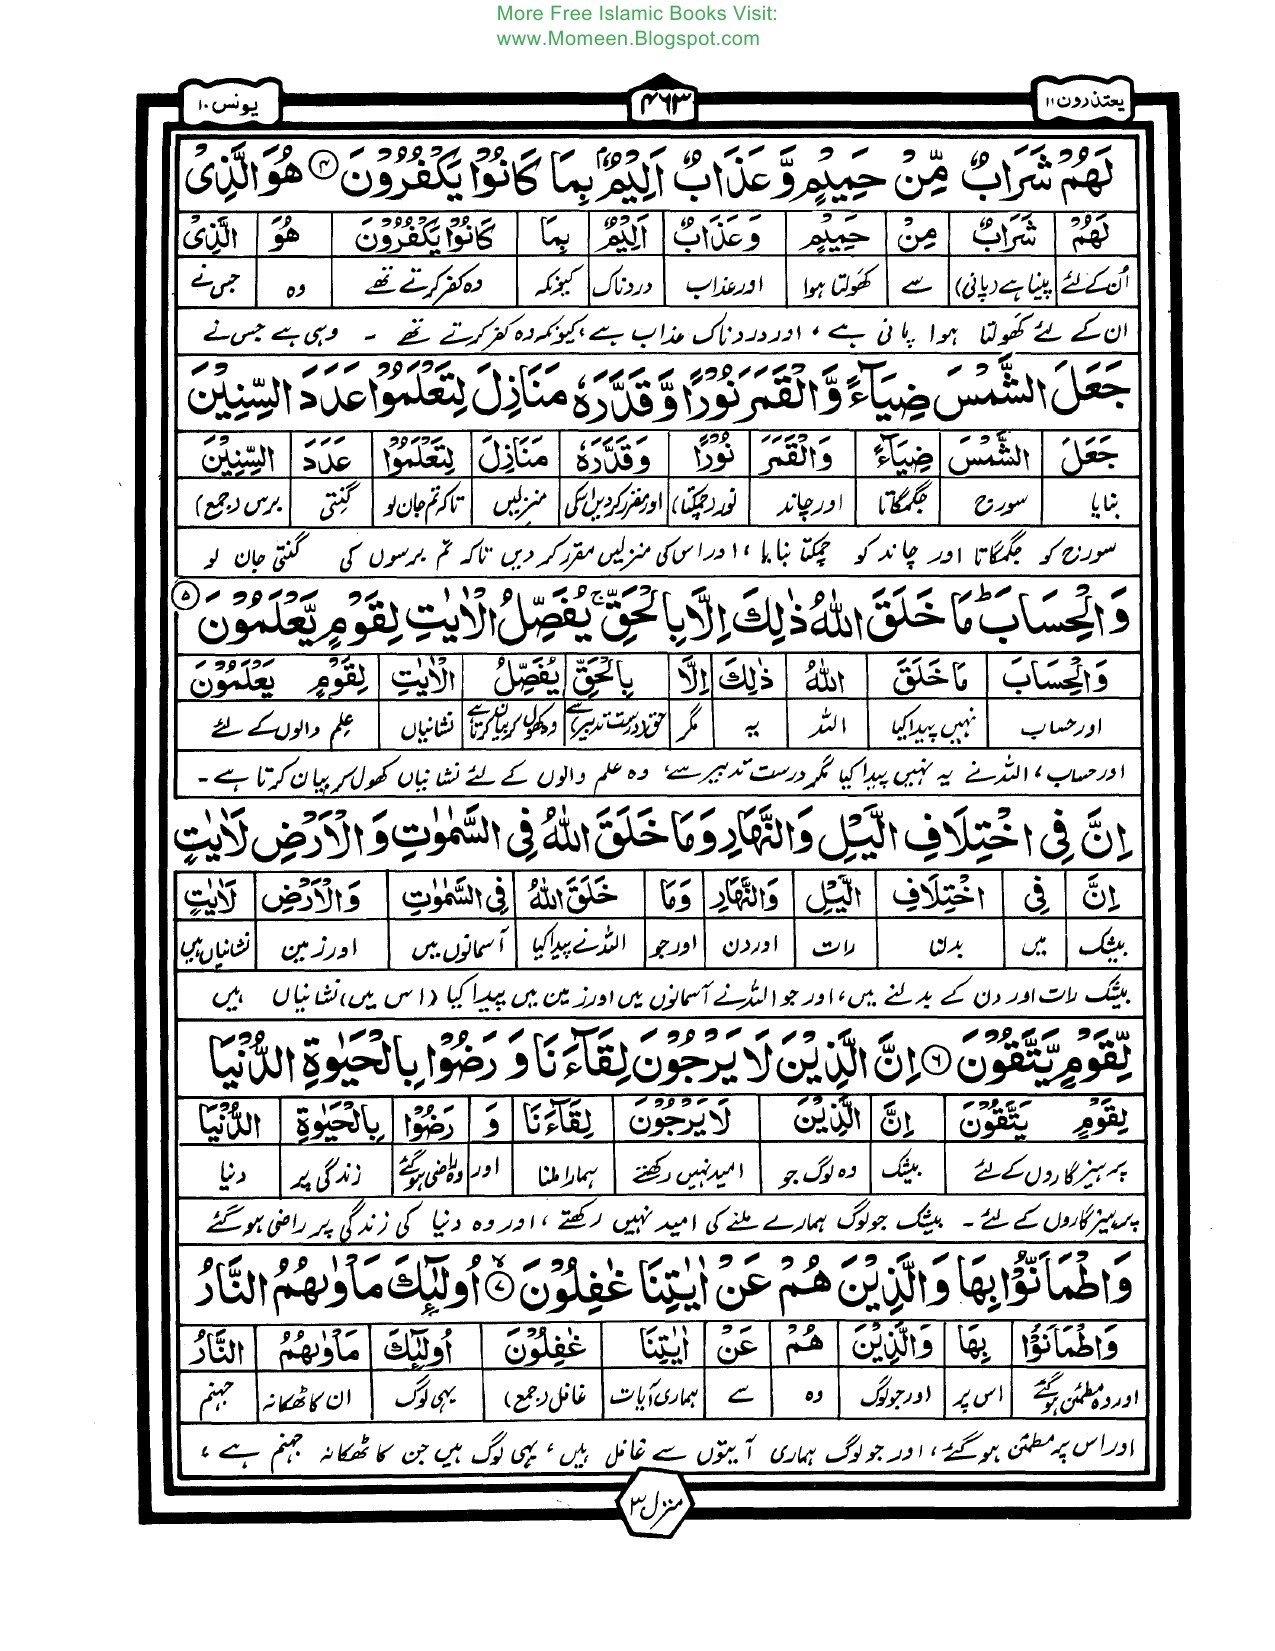 More Free Islamic Books Visit:
www.Momeen.Blogspot.com
یعتذرون ۱۱ ۴۶۳ یونس ۱۰
لَهُمْ شَرَابٌ مِّنْ حَمِيْمٍ وَّ عَذَابٌ اَلِيْمٌۢ بِمَا كَانُوْا يَكْفُرُوْنَ ۴ هُوَ الَّذِىْ
لَهُمْ شَرَابٌ مِنْ حَمِيْمٍ وَعَذَابٌ اَلِيْمٌ بِمَا كَانُوْا يَكْفُرُوْنَ هُوَ الَّذِىْ
اُن کے لئے پینا ہے (پانی) سے کھولتا ہوا اور عذاب دردناک کیونکہ وہ کفر کرتے تھے وہ جس نے
ان کے لئے کھولتا ہوا پانی ہے، اور دردناک عذاب ہے، کیونکہ وہ کفر کرتے تھے ۔ وہی ہے جس نے
جَعَلَ الشَّمْسَ ضِيَآءً وَّالْقَمَرَ نُوْرًا وَّقَدَّرَهٗ مَنَازِلَ لِتَعْلَمُوْا عَدَدَ السِّنِيْنَ
جَعَلَ الشَّمْسَ ضِيَآءً وَالْقَمَرَ نُوْرًا وَقَدَّرَهٗ مَنَازِلَ لِتَعْلَمُوْا عَدَدَ السِّنِيْنَ
بنایا سورج جگمگاتا اور چاند نور (چمکتا) اور مقرر کردیں اسکی منزلیں تاکہ تم جان لو گنتی برس (جمع)
سورج کو جگمگاتا اور چاند کو چمکتا بنایا، اور اس کی منزلیں مقرر کر دیں تاکہ تم برسوں کی گنتی جان لو
وَالْحِسَابَ ؕ مَا خَلَقَ اللّٰهُ ذٰلِكَ اِلَّا بِالْحَقِّ ۚ يُفَصِّلُ الْاٰيٰتِ لِقَوْمٍ يَّعْلَمُوْنَ ۵
وَالْحِسَابَ مَا خَلَقَ اللّٰهُ ذٰلِكَ اِلَّا بِالْحَقِّ يُفَصِّلُ الْاٰيٰتِ لِقَوْمٍ يَعْلَمُوْنَ
اور حساب نہیں پیدا کیا اللہ یہ مگر حق (درست تدبیر) سے وہ کھول کر بیان کرتا ہے نشانیاں علم والوں کے لئے
اور حساب، اللہ نے یہ نہیں پیدا کیا مگر درست تدبیر سے، وہ علم والوں کے لئے نشانیاں کھول کر بیان کرتا ہے ۔
اِنَّ فِى اخْتِلَافِ الَّيْلِ وَالنَّهَارِ وَمَا خَلَقَ اللّٰهُ فِى السَّمٰوٰتِ وَالْاَرْضِ لَاٰيٰتٍ
اِنَّ فِى اخْتِلَافِ الَّيْلِ وَالنَّهَارِ وَمَا خَلَقَ اللّٰهُ فِى السَّمٰوٰتِ وَالْاَرْضِ لَاٰيٰتٍ
بیشک میں بدلنا رات اور دن اور جو اللہ نے پیدا کیا آسمانوں میں اور زمین نشانیاں ہیں
بیشک رات اور دن کے بدلنے میں، اور جو اللہ نے آسمانوں میں اور زمین میں پیدا کیا (اس میں) نشانیاں ہیں
لِّقَوْمٍ يَّتَّقُوْنَ ۶ اِنَّ الَّذِيْنَ لَا يَرْجُوْنَ لِقَآءَنَا وَ رَضُوْا بِالْحَيٰوةِ الدُّنْيَا
لِقَوْمٍ يَتَّقُوْنَ اِنَّ الَّذِيْنَ لَا يَرْجُوْنَ لِقَآءَنَا وَ رَضُوْا بِالْحَيٰوةِ الدُّنْيَا
پرہیزگاروں کے لئے بیشک وہ لوگ جو امید نہیں رکھتے ہمارا ملنا اور وہ راضی ہوگئے زندگی پر دنیا
پرہیزگاروں کے لئے ۔ بیشک جو لوگ ہمارے ملنے کی امید نہیں رکھتے، اور وہ دنیا کی زندگی پر راضی ہو گئے
وَاطْمَاَنُّوْا بِهَا وَالَّذِيْنَ هُمْ عَنْ اٰيٰتِنَا غٰفِلُوْنَ ۷ۙ اُولٰٓئِكَ مَاْوٰىهُمُ النَّارُ
وَاطْمَاَنُّوْا بِهَا وَالَّذِيْنَ هُمْ عَنْ اٰيٰتِنَا غٰفِلُوْنَ اُولٰٓئِكَ مَاْوٰىهُمُ النَّارُ
اور وہ مطمئن ہو گئے اس پر اور جو لوگ وہ سے ہماری آیات غافل (جمع) یہی لوگ ان کا ٹھکانہ جہنم
اور اس پر مطمئن ہو گئے، اور جو لوگ ہماری آیتوں سے غافل ہیں، یہی لوگ ہیں جن کا ٹھکانہ جہنم ہے،
منزل ۳